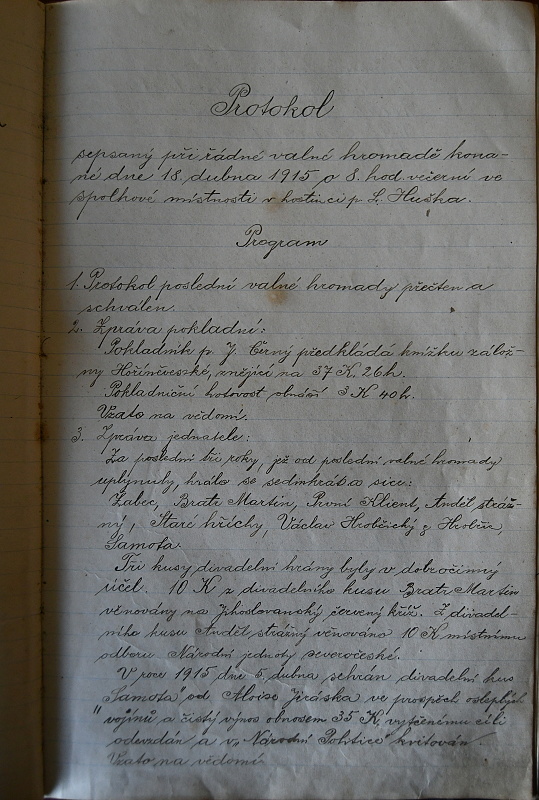 Protokol
sepsaný při řádné valné hromadě kona-
né dne 18. dubna 1915 o 8. hod. večerní ve
spolkové místnosti v hostinci p. L. Huška.
Program
1. Protokol poslední valné hromady přečten a
schválen.
2. Zpráva pokladní:
Pokladník p. J. Černý předkládá knížku zálož-
ny znějící na 37 K. 26 h.
Pokladniční hotovost obnáší 3 K 40 h.
Vzato na vědomí.
3. Zpráva jednatele:
Za poslední tři roky, jež od poslední valné hromady
uplynuly, hrálo se sedmkrát a sice:
Zabec, Bratr Martin, První klient, Anděl stráž-
ný, Staré hříchy, Václav Hrobčický z Hrobčic,
Samota.
Tři kusy divadelní hrány byly v dobročinný
účel. 10 K z divadelního kusu Bratr Martin
věnovány na Jihoslovanský červený kříž. Z divadel-
ního kusu Anděl strážný věnováno 10 K místnímu
odboru Národní jednoty severočeské.
V roce 1915 dne 5. dubna sehrán divadelní kus
"Samota" od Aloise Jiráska ve prospěch oslepených
vojínů a čistý výnos obnosem 35 K, vytčenému cíli
odevzdán a v "Národní Politice" kvitován.
Vzato na vědomí.